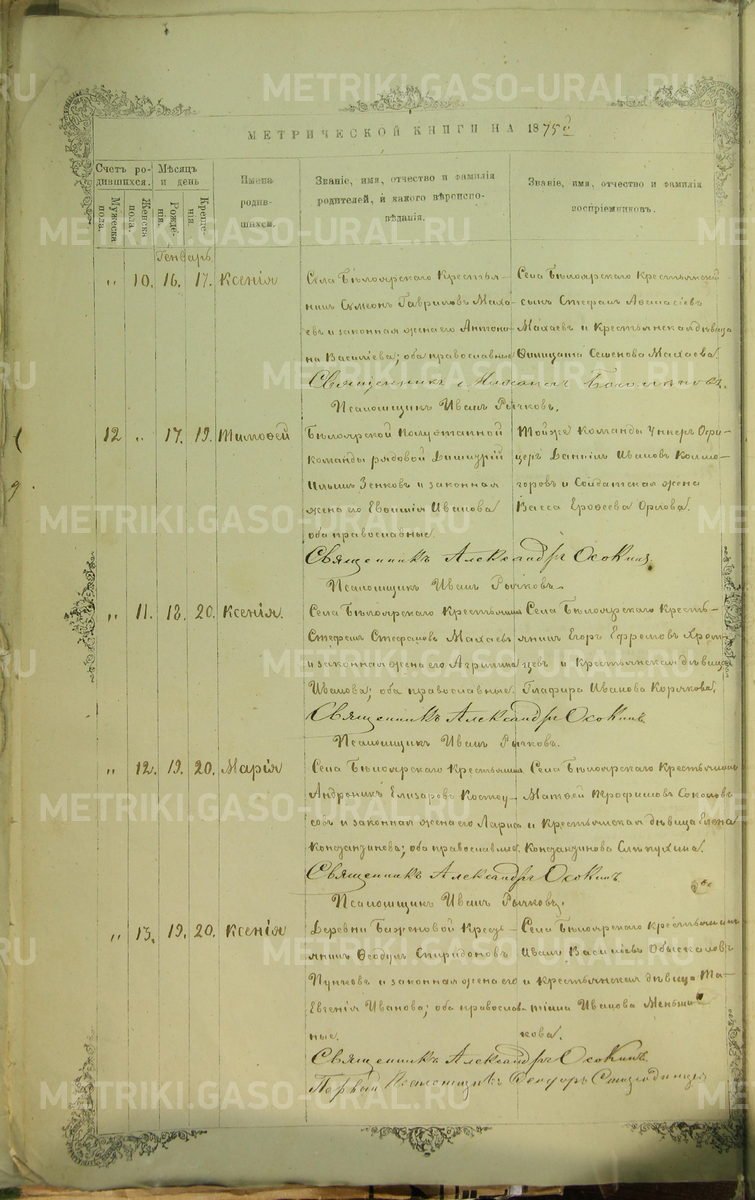 МЕТРИЧЕСКОЙ КНИГИ НА 1875й
Счетъ родившихся.
Мужеска пола.
Женска пола.
Мѣсяцъ и день
Рожденія.
Крещенія.
Имена родившихся.
Званіе, имя, отчество и фамилія родителей, и какого вѣроисповѣданія.
Званіе, имя, отчество и фамилія воспріемниковъ.
Генварь
„ 10. 16. 17. Ксенія
Села Бѣлоярскаго Крестьянинъ Сѵмеонъ Гавриловъ Махаевъ и законная жена его Антонина Васильева; оба православные
Села Бѣлоярскаго Крестьянскій сынъ Стефанъ Махаевъ и Крестьянская дѣвица Семенова Махаева.
Священникъ
Псаломщикъ Иванъ Рычковъ.
12 „ 17. 19. Тимоѳей
Бѣлоярской Полуэтапной команды рядовой Димитрій Ильинъ Зенковъ и законная жена его Евѳимія Иванова оба православные.
Тойже команды Унтеръ Офицеръ Даніилъ Ивановъ Колмогоровъ и Солдатская жена Васса Ероѳеева Орлова.
Священникъ Александръ Осокинъ
Псаломщикъ Иванъ Рычковъ.
„ 11. 18. 20. Ксенія.
Села Бѣлоярскаго Крестьянинъ Стефанъ Стефановъ Махаевъ и законная жена его Агрипина Иванова; оба православные.
Села Бѣлоярскаго Крестьянинъ Егоръ Ефремовъ Храмцевъ и Крестьянская дѣвица Глафира Иванова Корякова.
Священникъ Александръ Осокинъ
Псаломщикъ Иванъ Рычковъ.
„ 12. 19. 20. Марія
Села Бѣлоярскаго Крестьянинъ Андроникъ Елизаровъ и законная жена его Лариса Констанзинова; оба православные.
Села Бѣлоярскаго Крестьянинъ Матвей Соколовъ и Крестьянская дѣвица Елена Констанзинова Слѣпухина.
Священникъ Александръ Осокинъ.
Псаломщикъ Иванъ Рычковъ.
„ 13. 19. 20. Ксенія
Деревни Баженовой Крестьянинъ Ѳеодулъ Спиридоновъ и законная жена его Евгенія Иванова; оба православные.
Села Бѣлоярскаго Крестьянинъ Иванъ Васильевъ Обыскаловъ и крестьянская дѣвица Татіана Иванова Меньшикова.
Священникъ Александръ Осокинъ
Первый Псаломщикъ Ѳеодоръ
METRIKI.GASO-URAL.RU